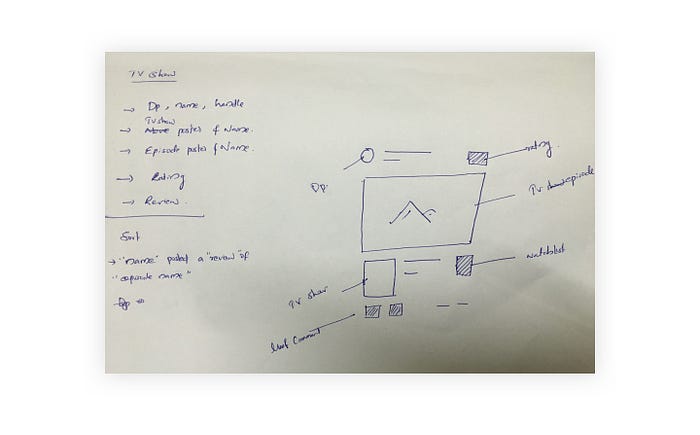 TV Show
→ Dp, name, handle
TV show
→ Movie poster & Name.
→ Episode poster & Name.
→ Rating
→ Review.
→ "name" posted a "review" of
"episode name"
rating.
Dp
TV show episode
watchlist
TV show
Comment